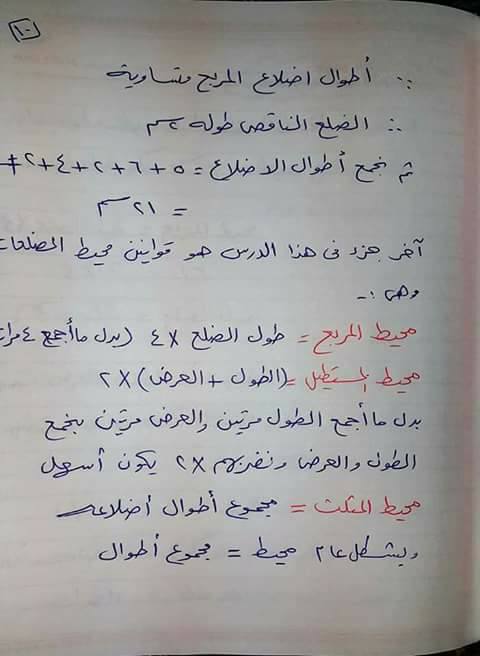 ١٠
∵ أطوال اضلاع المربع متساوية
∴ الضلع الناقص طوله ٢سم
ثم نجمع أطوال الاضلاع = ٥+٦+٢+٤+٢+
= ٢١ سم
آخر جزء فى هذا الدرس هو قوانين محيط المضلعات
وهى :-
محيط المربع = طول الضلع × ٤ (بدل ماأجمع ٤ مرات
محيط المستطيل = (الطول + العرض) × ٢
بدل ماأجمع الطول مرتين والعرض مرتين بنجمع
الطول والعرض ونضربهم ×٢ يكون أسهل
محيط المثلث = مجموع أطوال أضلاعه
وبشكل عام محيط = مجموع أطوال